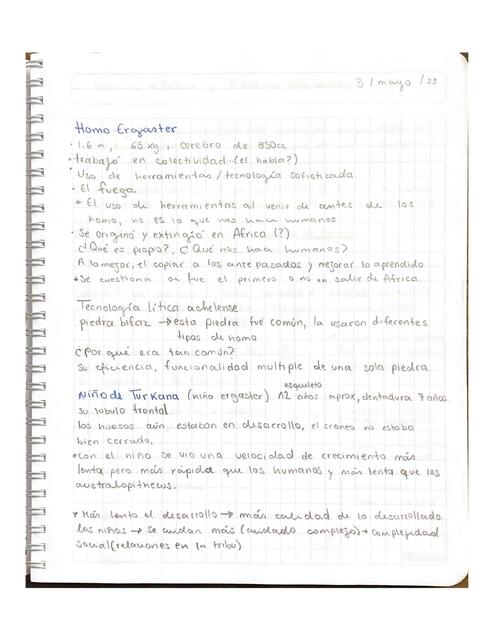 3/mayo/23
Homo Ergaster
• 1,6 m, 65 kg, cerebro de 850cc
• trabajó en colectividad (el habla?)
• Uso de herramientas/tecnología sofisticada.
• El fuego.
* El uso de herramientas al venir de antes de los
homo, no es lo que nos hace humanos
• Se originó y extinguió en Africa (?)
¿Qué es propio?, ¿Qué nos hace humanos?
A lo mejor, el copiar a los antepasados y mejorar lo aprendido
* Se cuestiona si fue el primero o no en salir de Africa.
Tecnología lítica achelense
piedra bifaz → esta piedra fue común, la usaron diferentes
tipos de homo
¿Por qué era tan común?
Su eficiencia, funcionalidad multiple de una sola piedra
Niño de Turkana (niño ergaster) esqueleto 12 años aprox, dentadura 7 años.
su lobulo frontal
los huesos aún estaban en desarrollo, el craneo no estaba
bien cerrado,
* con el niño se vio una velocidad de crecimiento más
lenta pero más rápida que los humanos y más lenta que los
australopithecus.
* Más lento el desarrollo → más calidad de lo desarrollado
Los niños → se cuidan más (cuidado complejo) → complejidad
social (relaciones en la tribu)